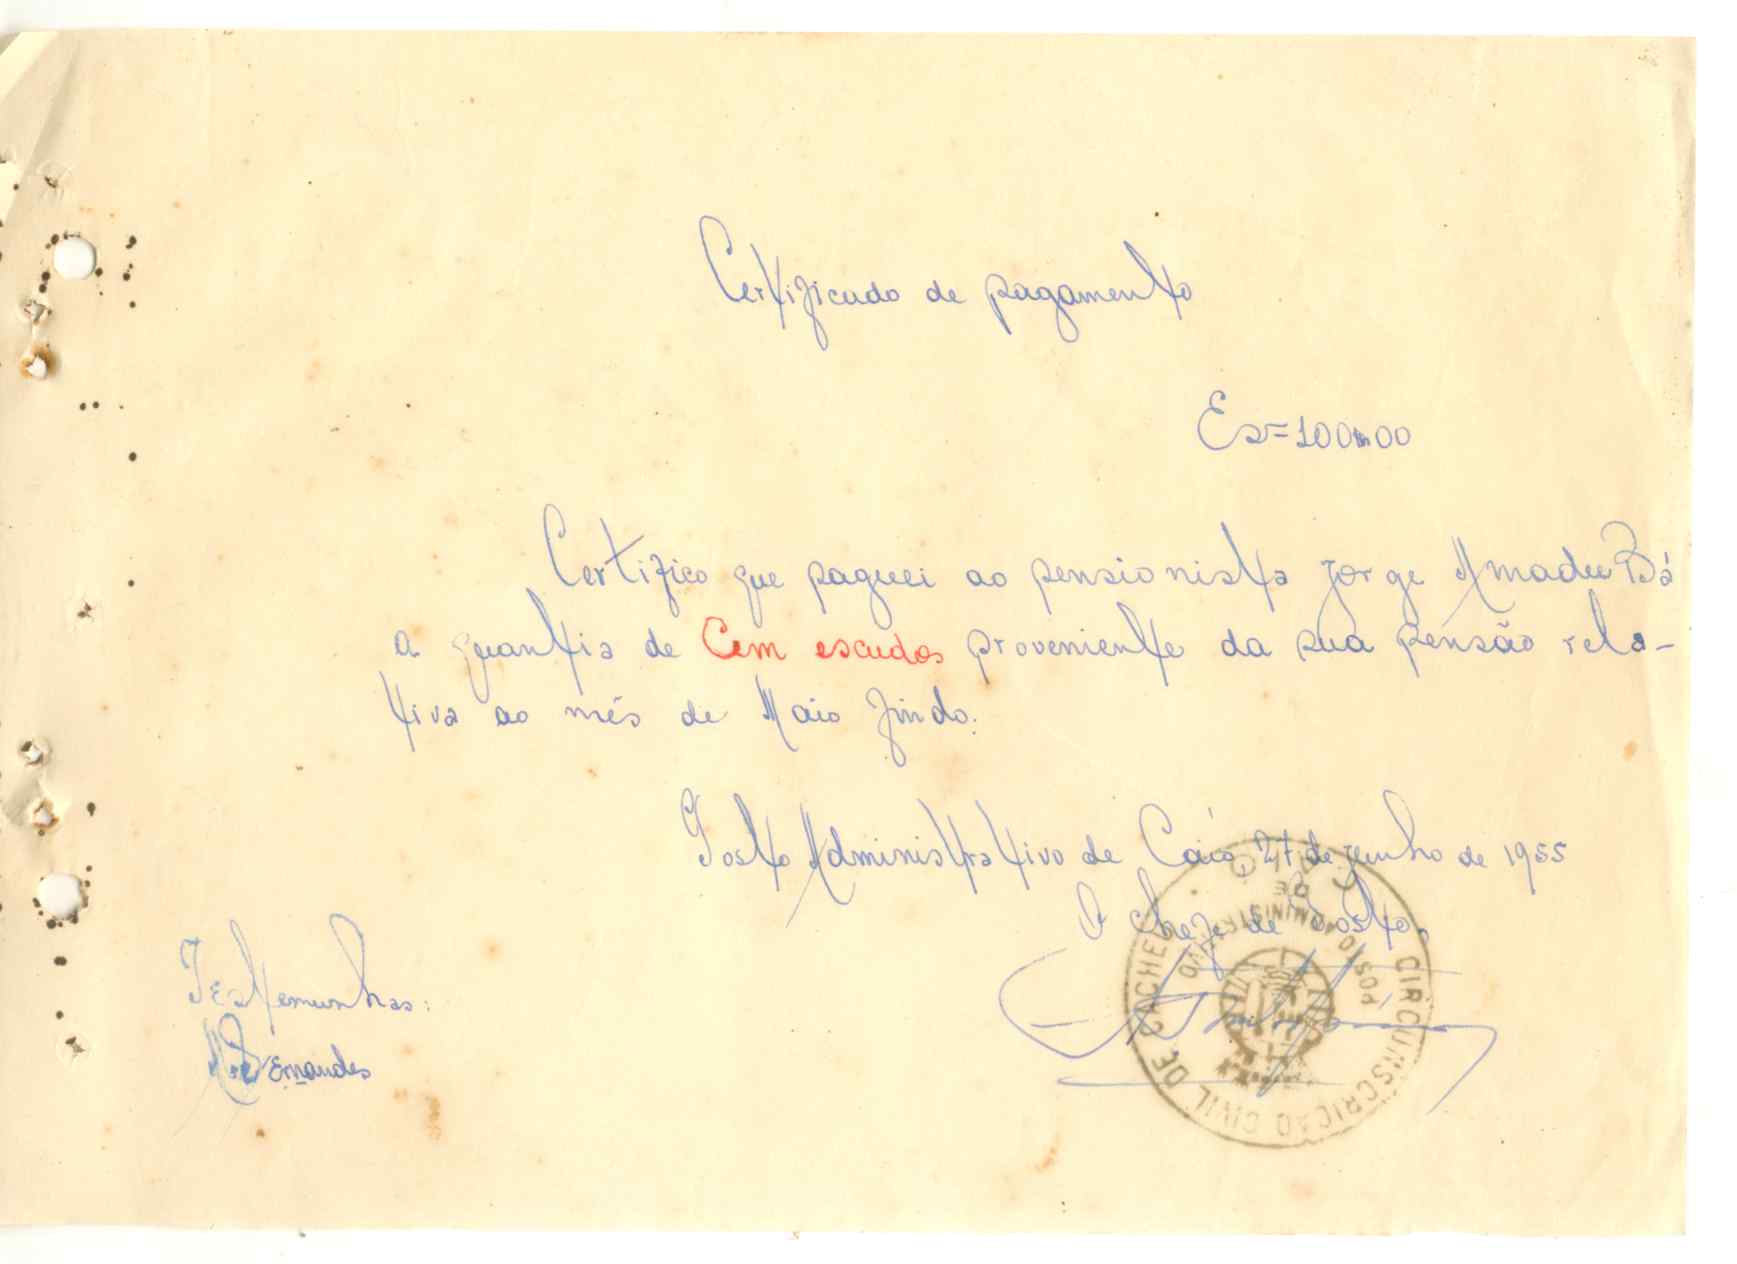 Certificado de pagamento
Es=100$00
Certifico que paguei ao pensionista Jorge Amadu Bá
a quantia de Cem escudos proveniente da sua pensão rela-
tiva ao mês de Maio findo.
Posto Administrativo de Caió, 27 de junho de 1955
O chefe de Posto,
CIRCUNSCRIÇÃO CIVIL DE CACHEU
POSTO ADMINISTRATIVO
DE
CAIÓ
Testemunhas:
Fernandes